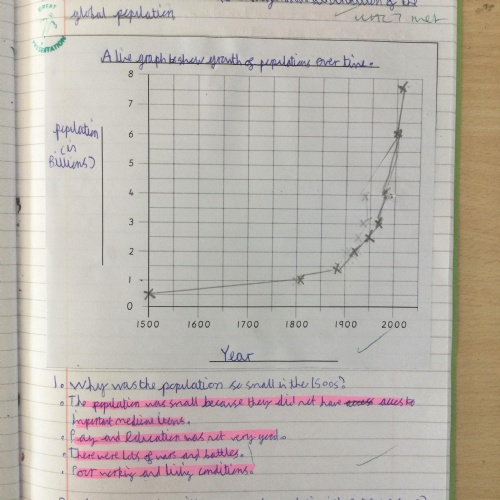 of the
global population
met
GREAT
PRESENTATION
A line graph to show growth of populations over time.
8
6
5
4
3
2
1
0
population
(in
Billions)
1500
1600
1700
1800
1900
2000
Year
1. Why was the population so small in the 1500s?
The population was small because they did not have acces to
important medicine
Pay and Education was not very good.
There were lots of wars and battles.
Poor working and living conditions.